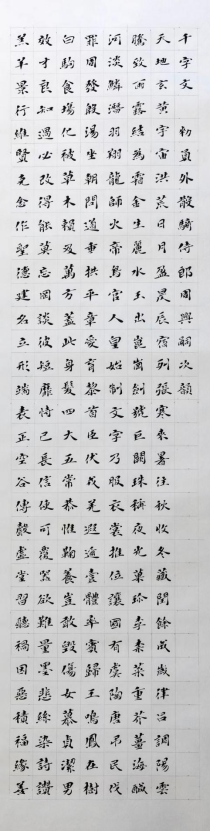 千字文 勅員外散騎侍郎周興嗣次韻
天地玄黃宇宙洪荒日月盈昃辰宿列張寒來暑往秋收冬藏閏餘成歲律呂調陽雲
騰致雨露結為霜金生麗水玉出崑岡劍號巨闕珠稱夜光菓珍李柰菜重芥薑海鹹
河淡鱗潛羽翔龍師火帝鳥官人皇始制文字乃服衣裳推位讓國有虞陶唐弔民伐
罪周發殷湯坐朝問道垂拱平章愛育黎首臣伏戎羌遐邇壹體率賓歸王鳴鳳在樹
白駒食場化被草木賴及萬方蓋此身髮四大五常恭惟鞠養豈敢毀傷女慕貞潔男
效才良知過必改得能莫忘罔談彼短靡恃己長信使可覆器欲難量墨悲絲染詩讚
羔羊景行維賢克念作聖德建名立形端表正空谷傳聲虛堂習聽禍因惡積福緣善